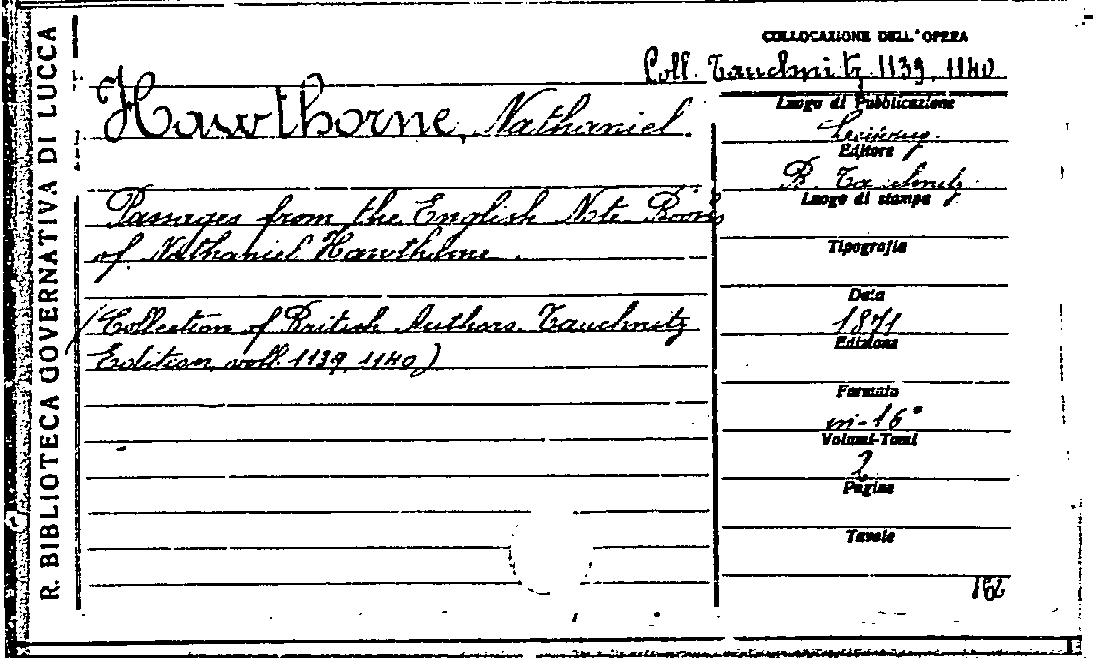 R. BIBLIOTECA GOVERNATIVA DI LUCCA
COLLOCAZIONE DELL'OPERA
Coll. Tauchnitz 1139, 1140
Hawthorne, Nathaniel.
Passages from the English Note Books
of Nathaniel Hawthorne.
(Collection of British Authors. Tauchnitz
Edition, voll. 1139, 1140)
Luogo di Pubblicazione
Editore
B. Tauchnitz
Luogo di stampa
Tipografia
Data
1871
Edizione
Formato
in-16°
Volumi-Tomi
2
Pagine
Tavole